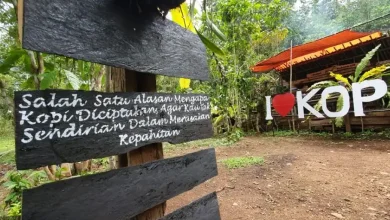 Salah Satu Alasan Mengapa
Kopi Diciptakan, Agar Kau Tak
Sendirian Dalam Merasakan
Kepahitan
I ❤ KOPI